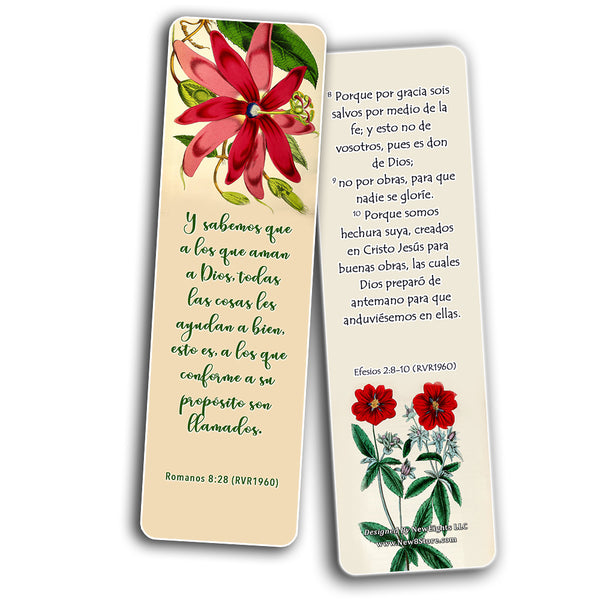 Y sabemos que
a los que aman
a Dios, todas
las cosas les
ayudan a bien,
esto es, a los que
conforme a su
propósito son
llamados.
Romanos 8:28 (RVR1960)
8 Porque por gracia sois
salvos por medio de la
fe; y esto no de
vosotros, pues es don
de Dios;
9 no por obras, para que
nadie se gloríe.
10 Porque somos
hechura suya, creados
en Cristo Jesús para
buenas obras, las cuales
Dios preparó de
antemano para que
anduviésemos en ellas.
Efesios 2:8-10 (RVR1960)
Designed by NewEights LLC
www.New8Store.com